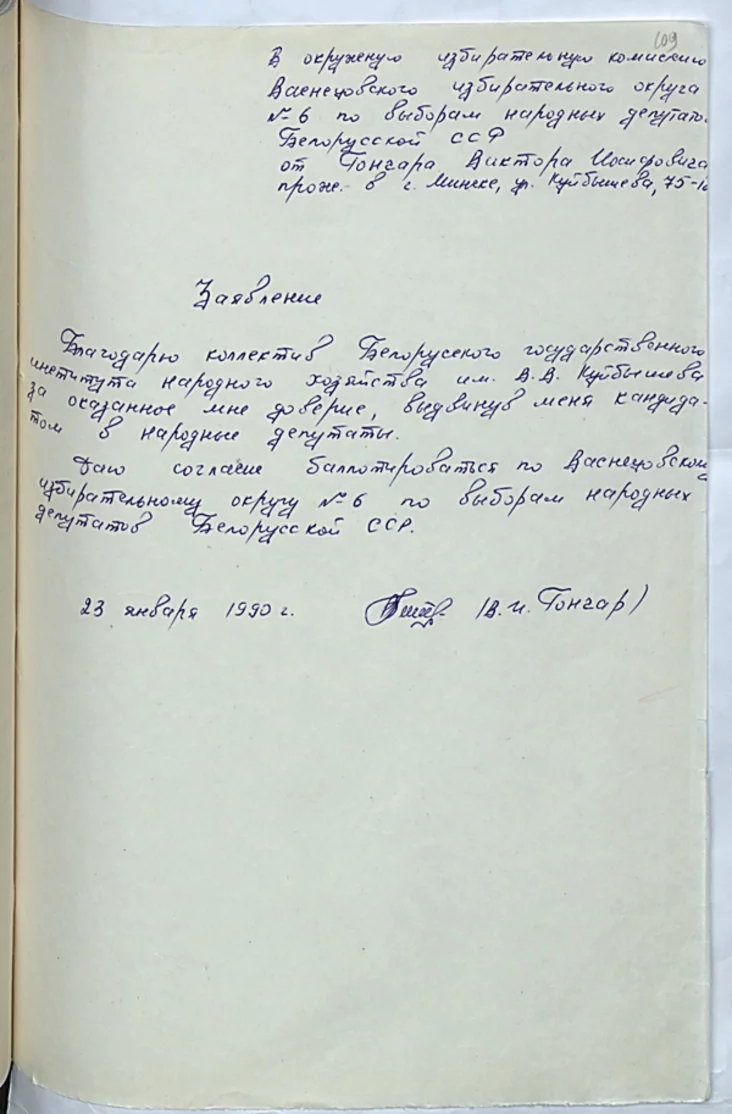 109
В окружную избирательную комиссию
Васнецовского избирательного округа
№ 6 по выборам народных депутато
Белорусской ССР
от Гончара Виктора Иосифовича
прож. в г. Минске, ул. Куйбышева, 75-
Заявление
Благодарю коллектив Белорусского государственного
института народного хозяйства им. В.В. Куйбышева
за оказанное мне доверие, выдвинув меня кандида-
том в народные депутаты.
Даю согласие баллотироваться по Васнецовском
избирательному округу № 6 по выборам народных
депутатов Белорусской ССР.
23 января 1990 г. (В.И. Гончар)